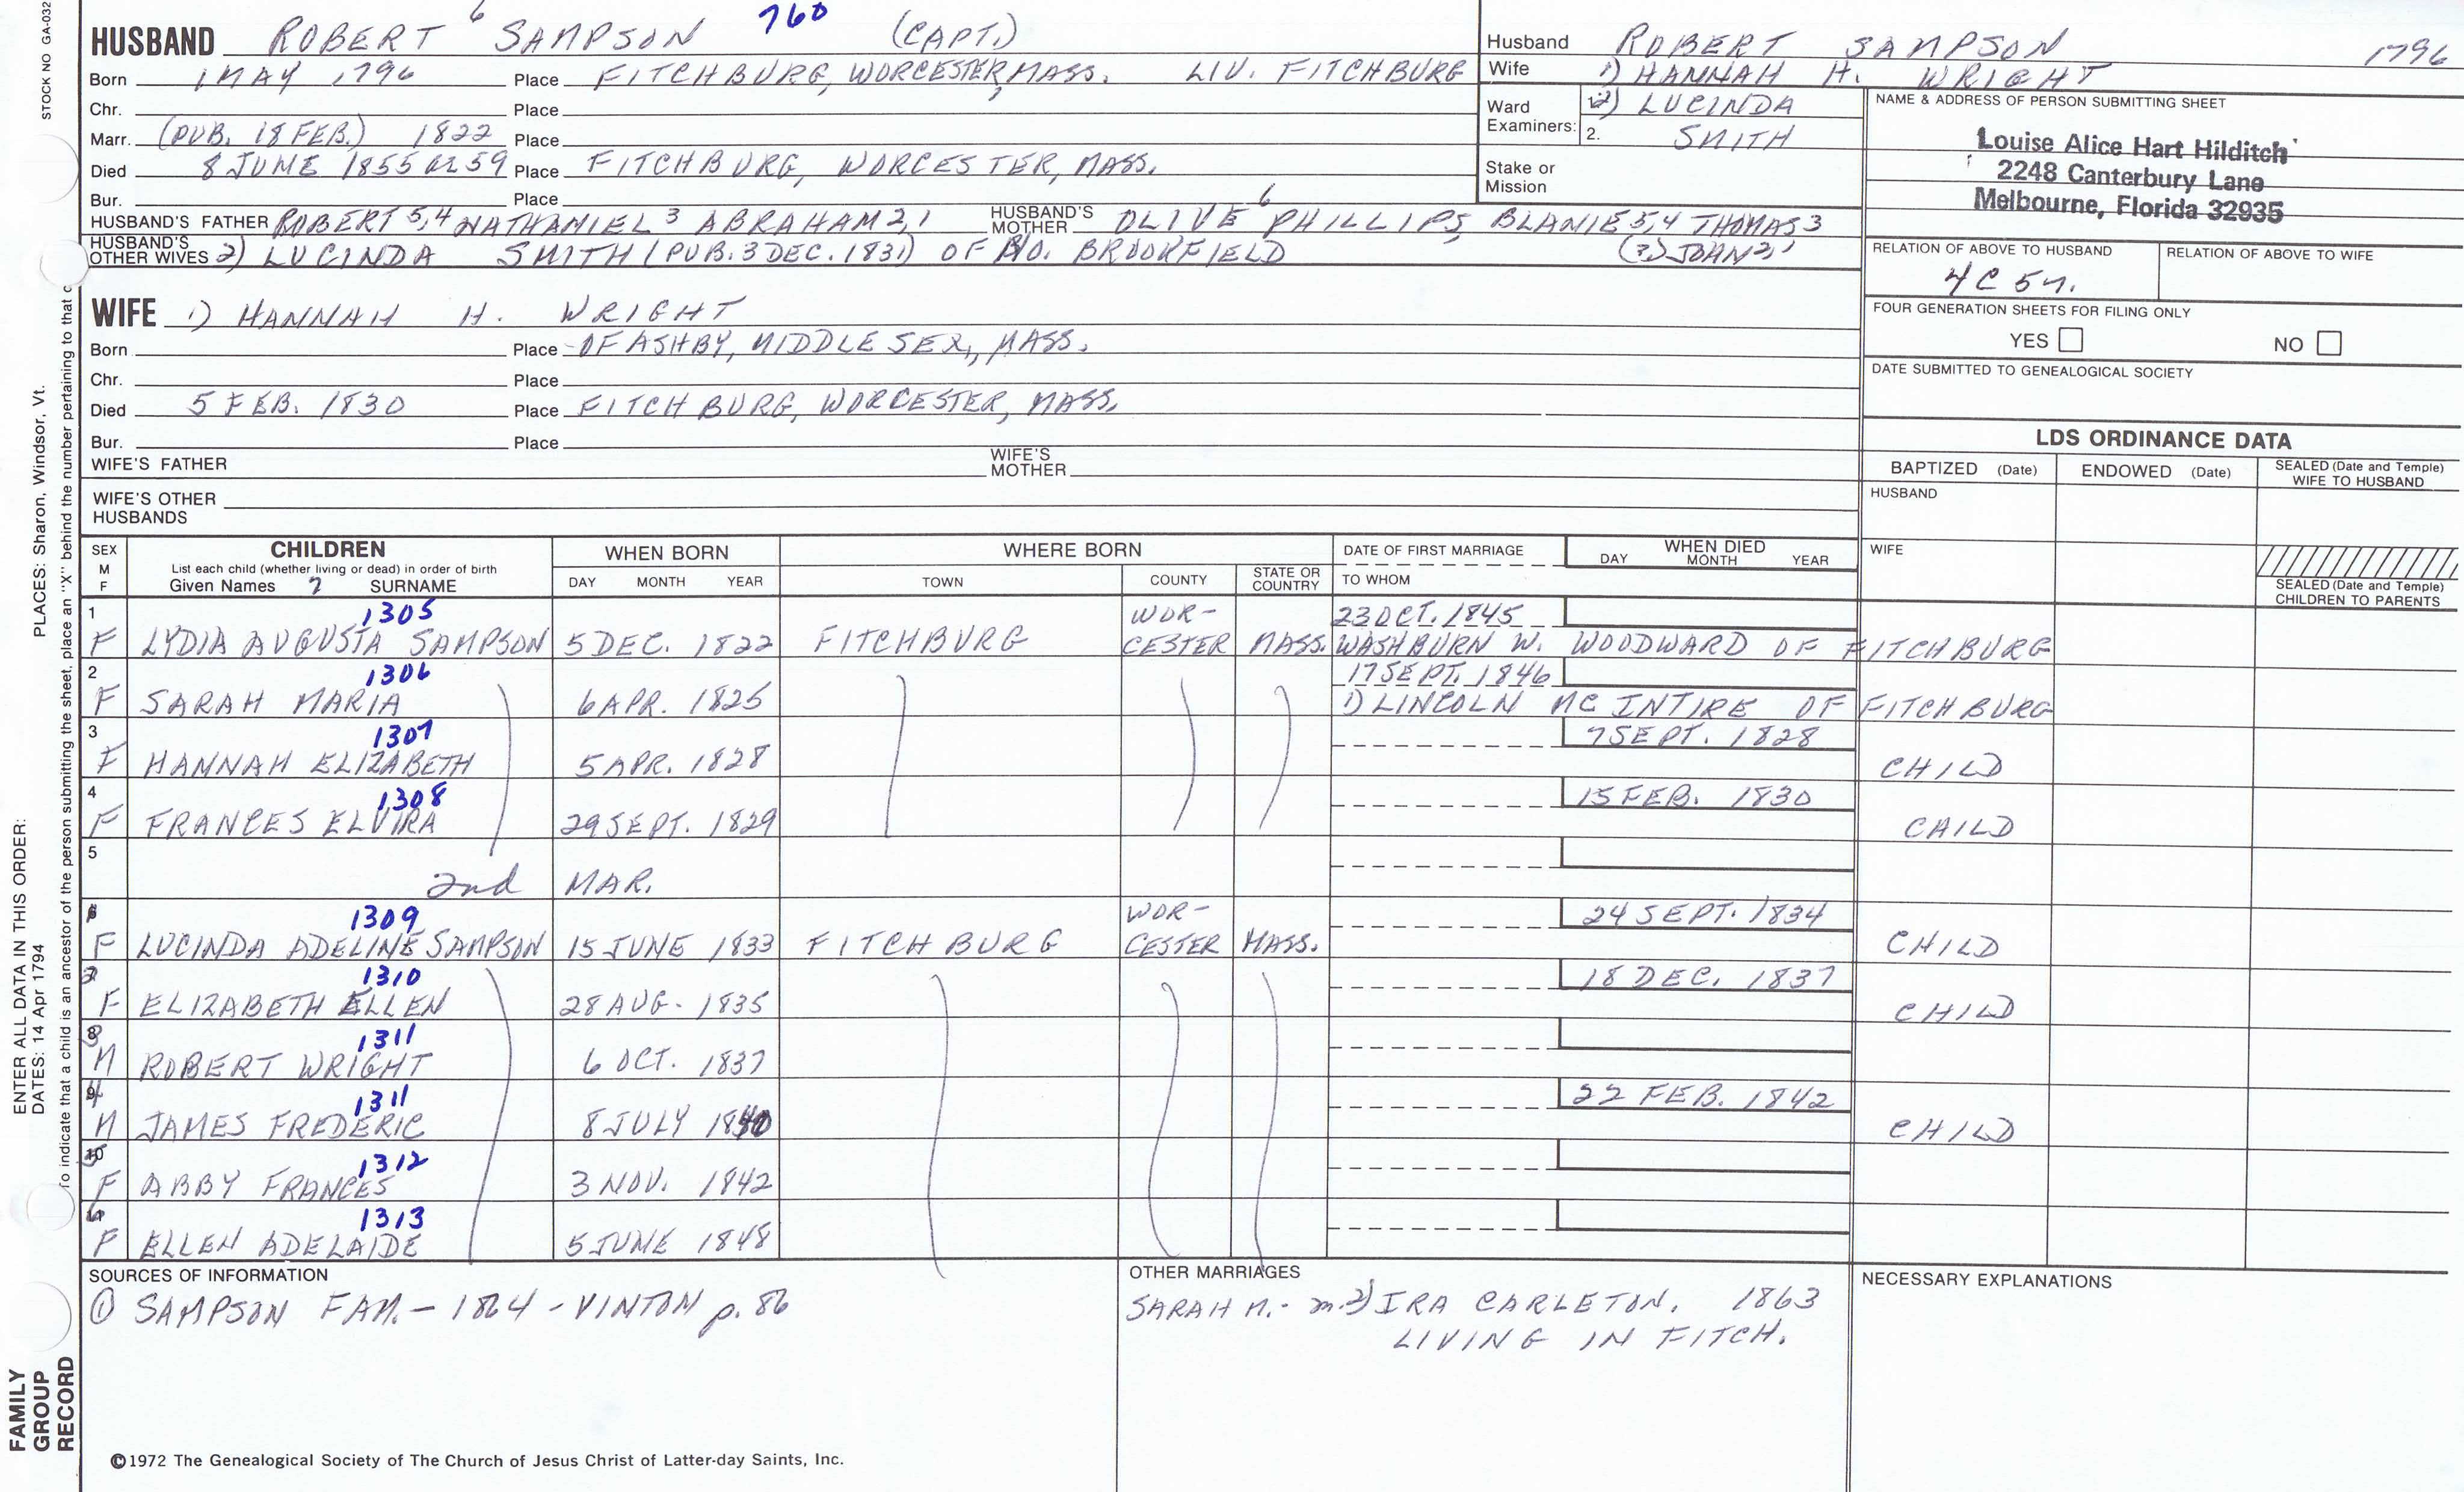 STOCK NO GA-032
PLACES: Sharon, Windsor, Vt.
ENTER ALL DATA IN THIS ORDER:
DATES: 14 Apr 1794
To indicate that a child is an ancestor of the person submitting the sheet, place an "X" behind the number pertaining to that c
FAMILY
GROUP
RECORD
HUSBAND ROBERT 6 SAMPSON 760 (CAPT.)
Born 1 MAY 1796 Place FITCHBURG, WORCESTER, MASS. LIV. FITCHBURG
Chr. Place
Marr. (PUB. 18 FEB.) 1822 Place
Died 8 JUNE 1855 AE 59 Place FITCHBURG, WORCESTER, MASS.
Bur. Place
HUSBAND'S FATHER ROBERT 5,4 NATHANIEL 3 ABRAHAM 2,1 HUSBAND'S MOTHER OLIVE 6 PHILLIPS, BLANIE 5,4 THOMAS 3
HUSBAND'S OTHER WIVES 2) LUCINDA SMITH (PUB. 3 DEC. 1831) OF NO. BROOKFIELD (?) JOHN 2,1
WIFE 1) HANNAH H. WRIGHT
Born Place OF ASHBY, MIDDLESEX, MASS.
Chr. Place
Died 5 FEB. 1830 Place FITCHBURG, WORCESTER, MASS.
Bur. Place
WIFE'S FATHER WIFE'S MOTHER
WIFE'S OTHER HUSBANDS
Husband ROBERT SAMPSON 1796
Wife 1) HANNAH H. WRIGHT
Ward Examiners: 1. 2) LUCINDA
2. SMITH
Stake or Mission
NAME & ADDRESS OF PERSON SUBMITTING SHEET
Louise Alice Hart Hilditch
2248 Canterbury Lane
Melbourne, Florida 32935
RELATION OF ABOVE TO HUSBAND RELATION OF ABOVE TO WIFE
4C 5r.
FOUR GENERATION SHEETS FOR FILING ONLY
YES NO
DATE SUBMITTED TO GENEALOGICAL SOCIETY
LDS ORDINANCE DATA
BAPTIZED (Date) ENDOWED (Date) SEALED (Date and Temple) WIFE TO HUSBAND
HUSBAND
WIFE
SEALED (Date and Temple) CHILDREN TO PARENTS
SEX M F CHILDREN WHEN BORN WHERE BORN DATE OF FIRST MARRIAGE WHEN DIED
List each child (whether living or dead) in order of birth
Given Names 7 SURNAME DAY MONTH YEAR TOWN COUNTY STATE OR COUNTRY TO WHOM DAY MONTH YEAR
1 1305 WOR- 23 OCT. 1845
F LYDIA AUGUSTA SAMPSON 5 DEC. 1822 FITCHBURG CESTER MASS. WASHBURN W. WOODWARD OF FITCHBURG
2 1306 17 SEPT. 1846
F SARAH MARIA 6 APR. 1825 1) LINCOLN MC INTIRE OF FITCHBURG
3 1307 7 SEPT. 1828
F HANNAH ELIZABETH 5 APR. 1828 CHILD
4 1308 15 FEB. 1830
F FRANCES ELVIRA 29 SEPT. 1829 CHILD
5
2nd MAR.
1309 WOR- 24 SEPT. 1834
F LUCINDA ADELINE SAMPSON 15 JUNE 1833 FITCHBURG CESTER MASS. CHILD
2 1310 18 DEC. 1837
F ELIZABETH ELLEN 28 AUG. 1835 CHILD
3 1311
M ROBERT WRIGHT 6 OCT. 1837
4 1311 22 FEB. 1842
M JAMES FREDERIC 8 JULY 1840 CHILD
5 1312
F ABBY FRANCES 3 NOV. 1842
6 1313
F ELLEN ADELAIDE 5 JUNE 1848
SOURCES OF INFORMATION
① SAMPSON FAM. - 1864 - VINTON p. 86
OTHER MARRIAGES
SARAH M. - m. 2) IRA CARLETON, 1863
LIVING IN FITCH.
NECESSARY EXPLANATIONS
©1972 The Genealogical Society of The Church of Jesus Christ of Latter-day Saints, Inc.